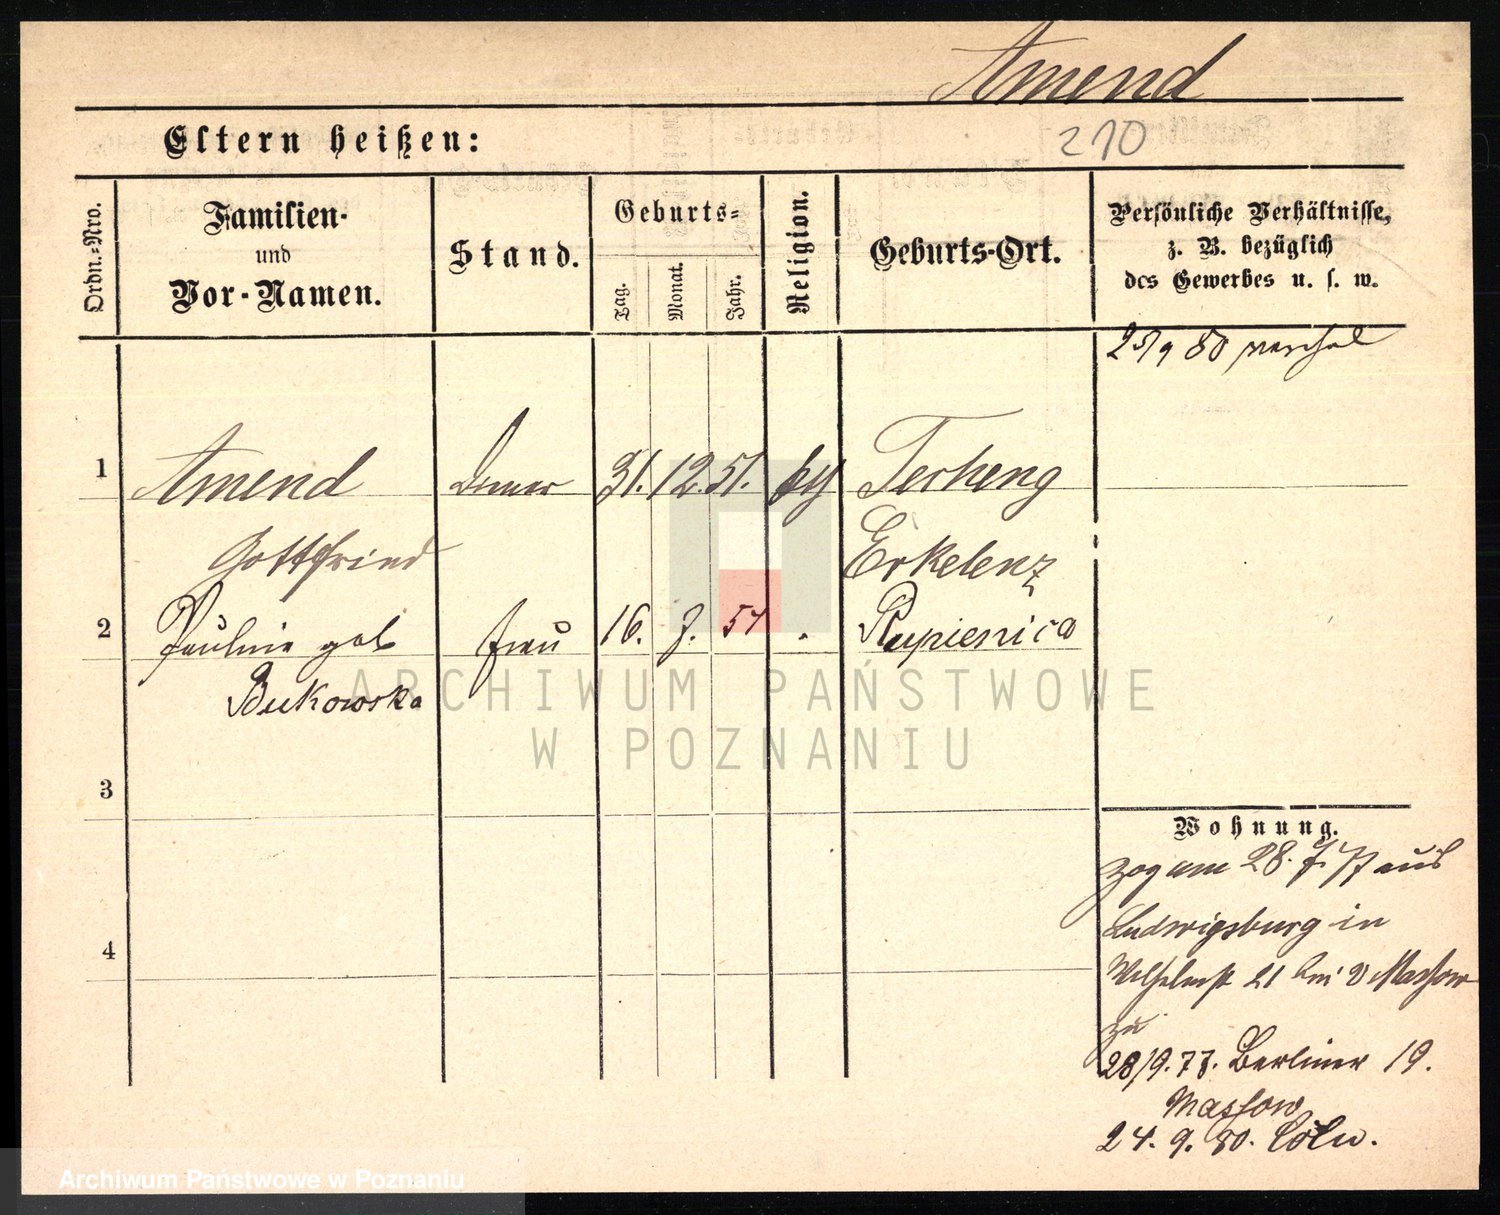 Amend
Eltern heißen:
210
Ordn.-Nro.
Familien-
und
Vor-Namen.
Stand.
Geburts-
Tag.
Monat.
Jahr.
Religion.
Geburts-Ort.
Persönliche Verhältnisse,
z. B. bezüglich
des Gewerbes u. s. w.
25/9 80
1
Amend
Diener
31. 12. 51.
Terheng
Gottfried
Erkelenz
2
Pauline geb
frau
16. 7. 51
Rupienica
Bukowska
ARCHIWUM PAŃSTWOWE
W POZNANIU
3
Wohnung.
zog am 28. 7. 77 aus
Ludwigsburg in
4
Wilhelmst 21 bei v Massow
zu
28/9. 77. Berliner 19.
Massow
24. 9. 80. Cöln.
Archiwum Państwowe w Poznaniu